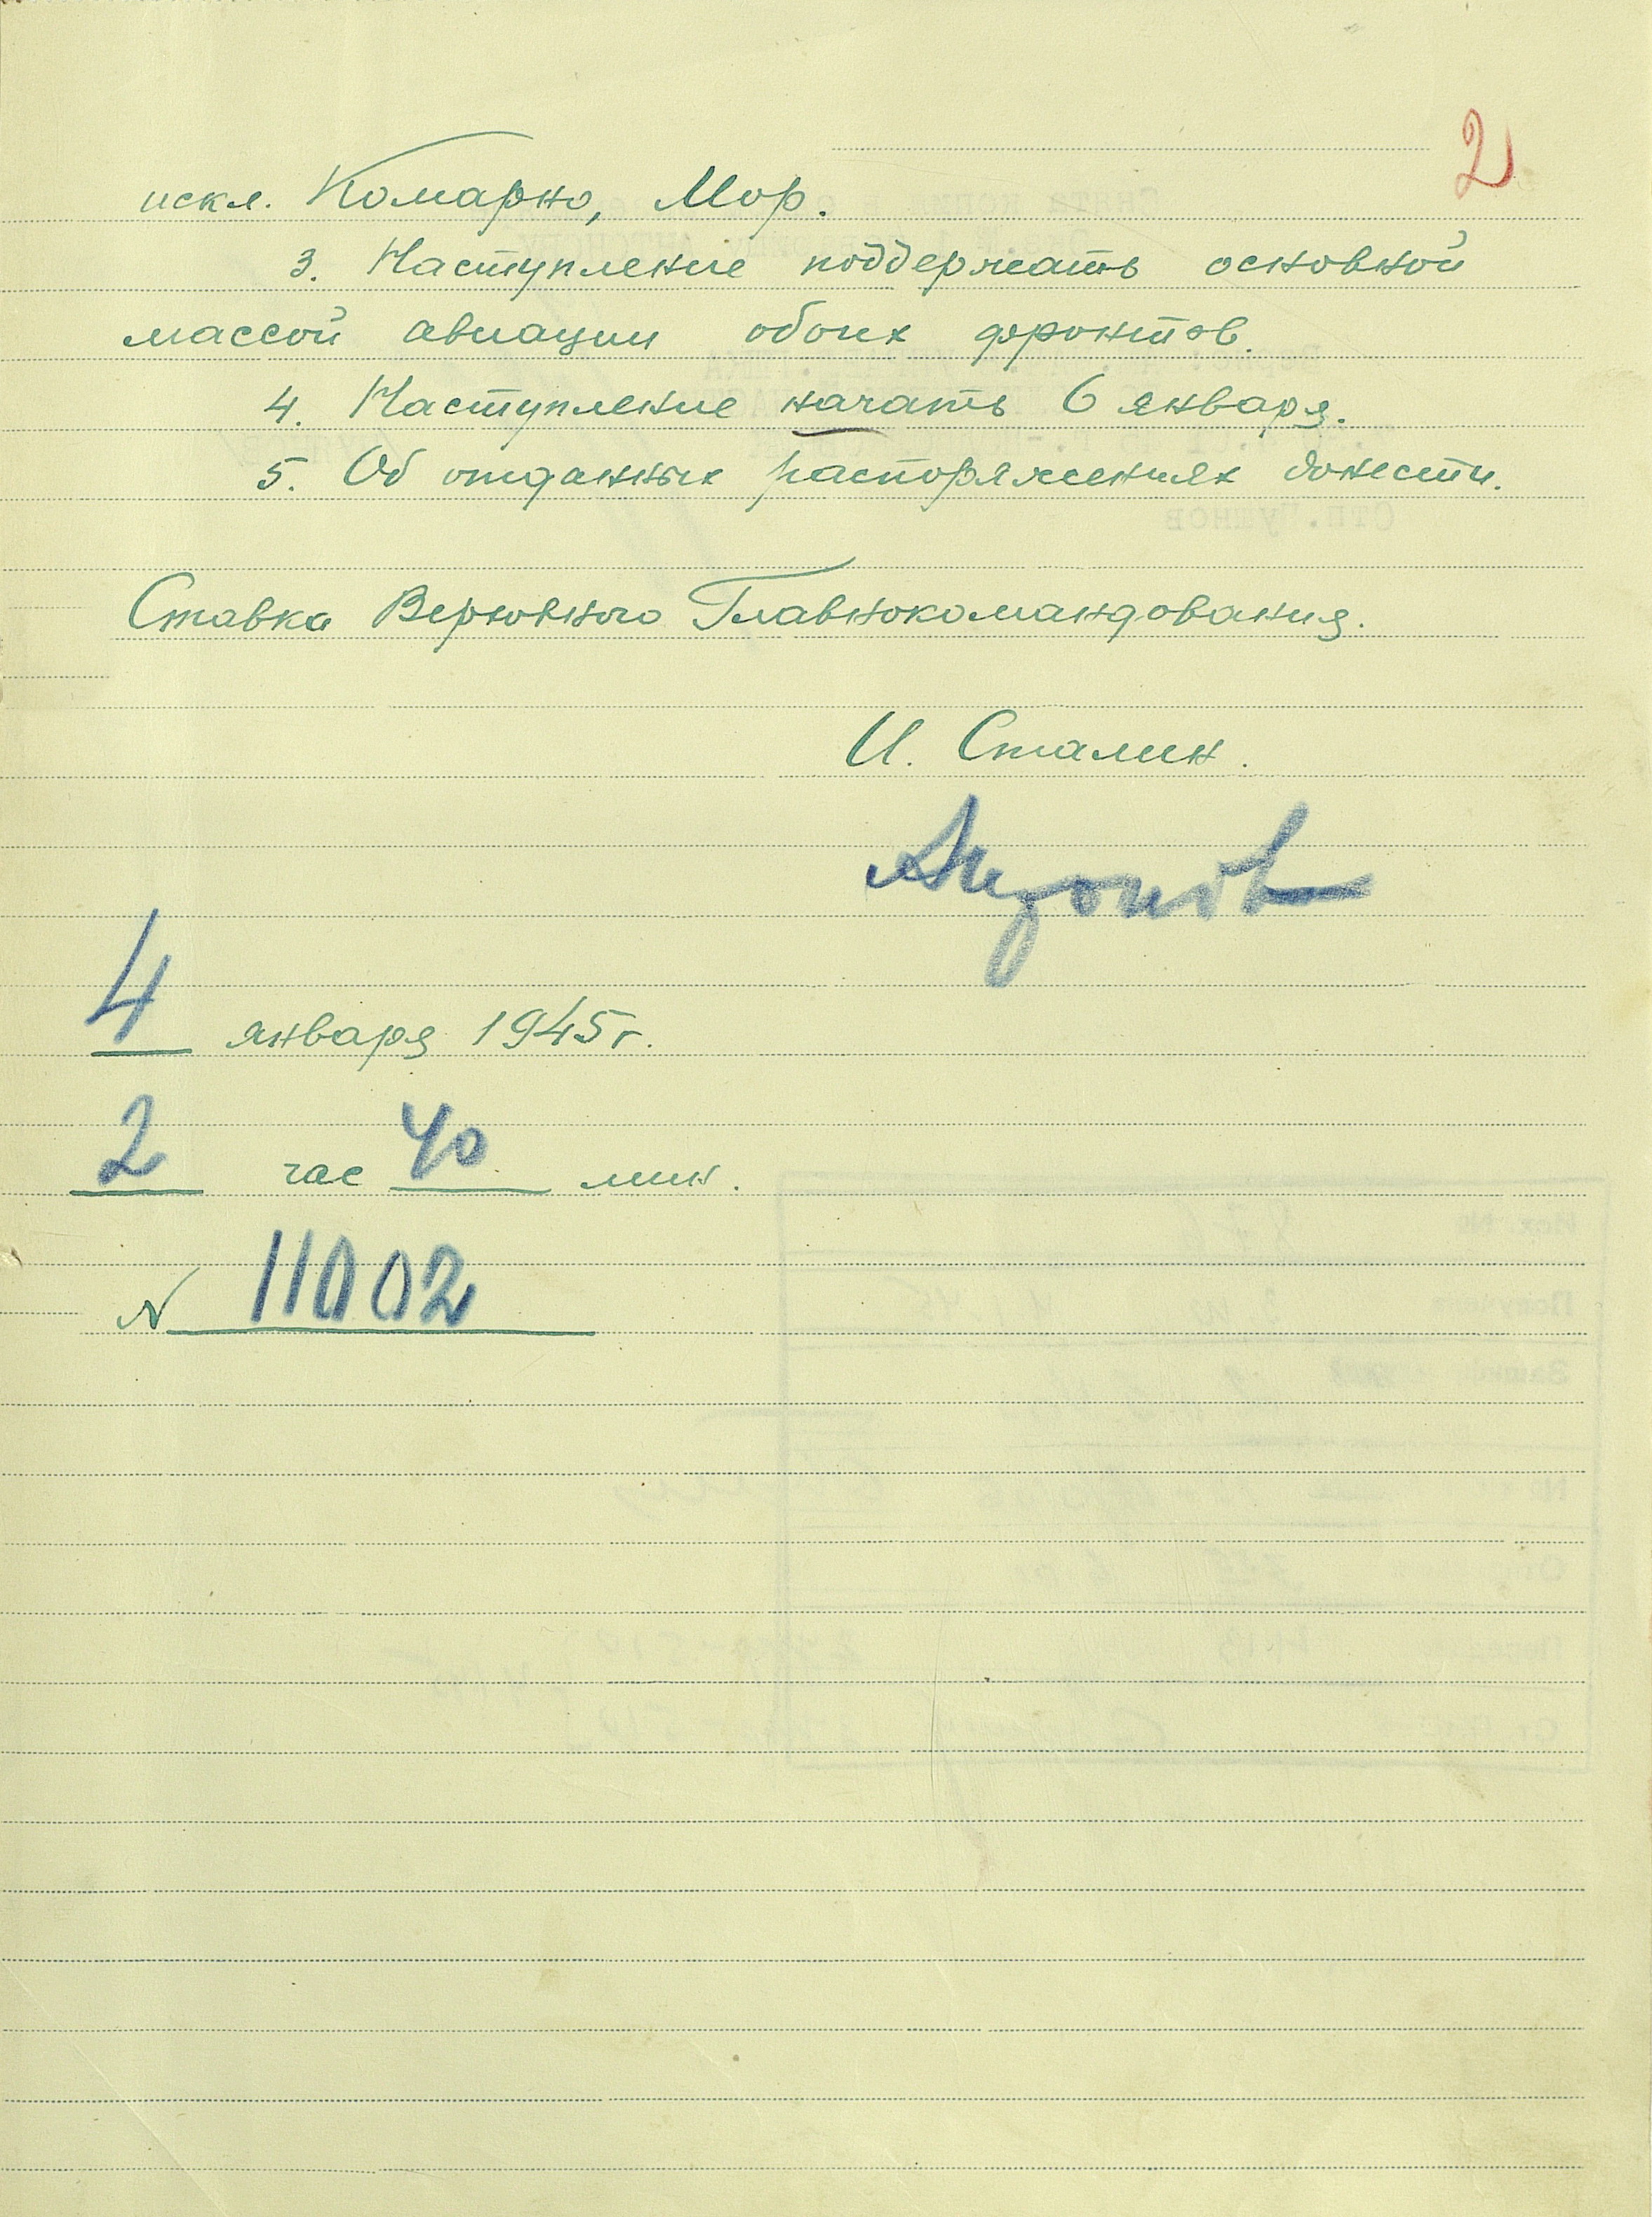 2
искл. Комарно, Мор.
3. Наступление поддержать основной
массой авиации обоих фронтов.
4. Наступление начать 6 января.
5. Об отданных распоряжениях донести.
Ставка Верховного Главнокомандования.
И. Сталин.
Антонов
4 января 1945 г.
2 час 40 мин.
N 11002